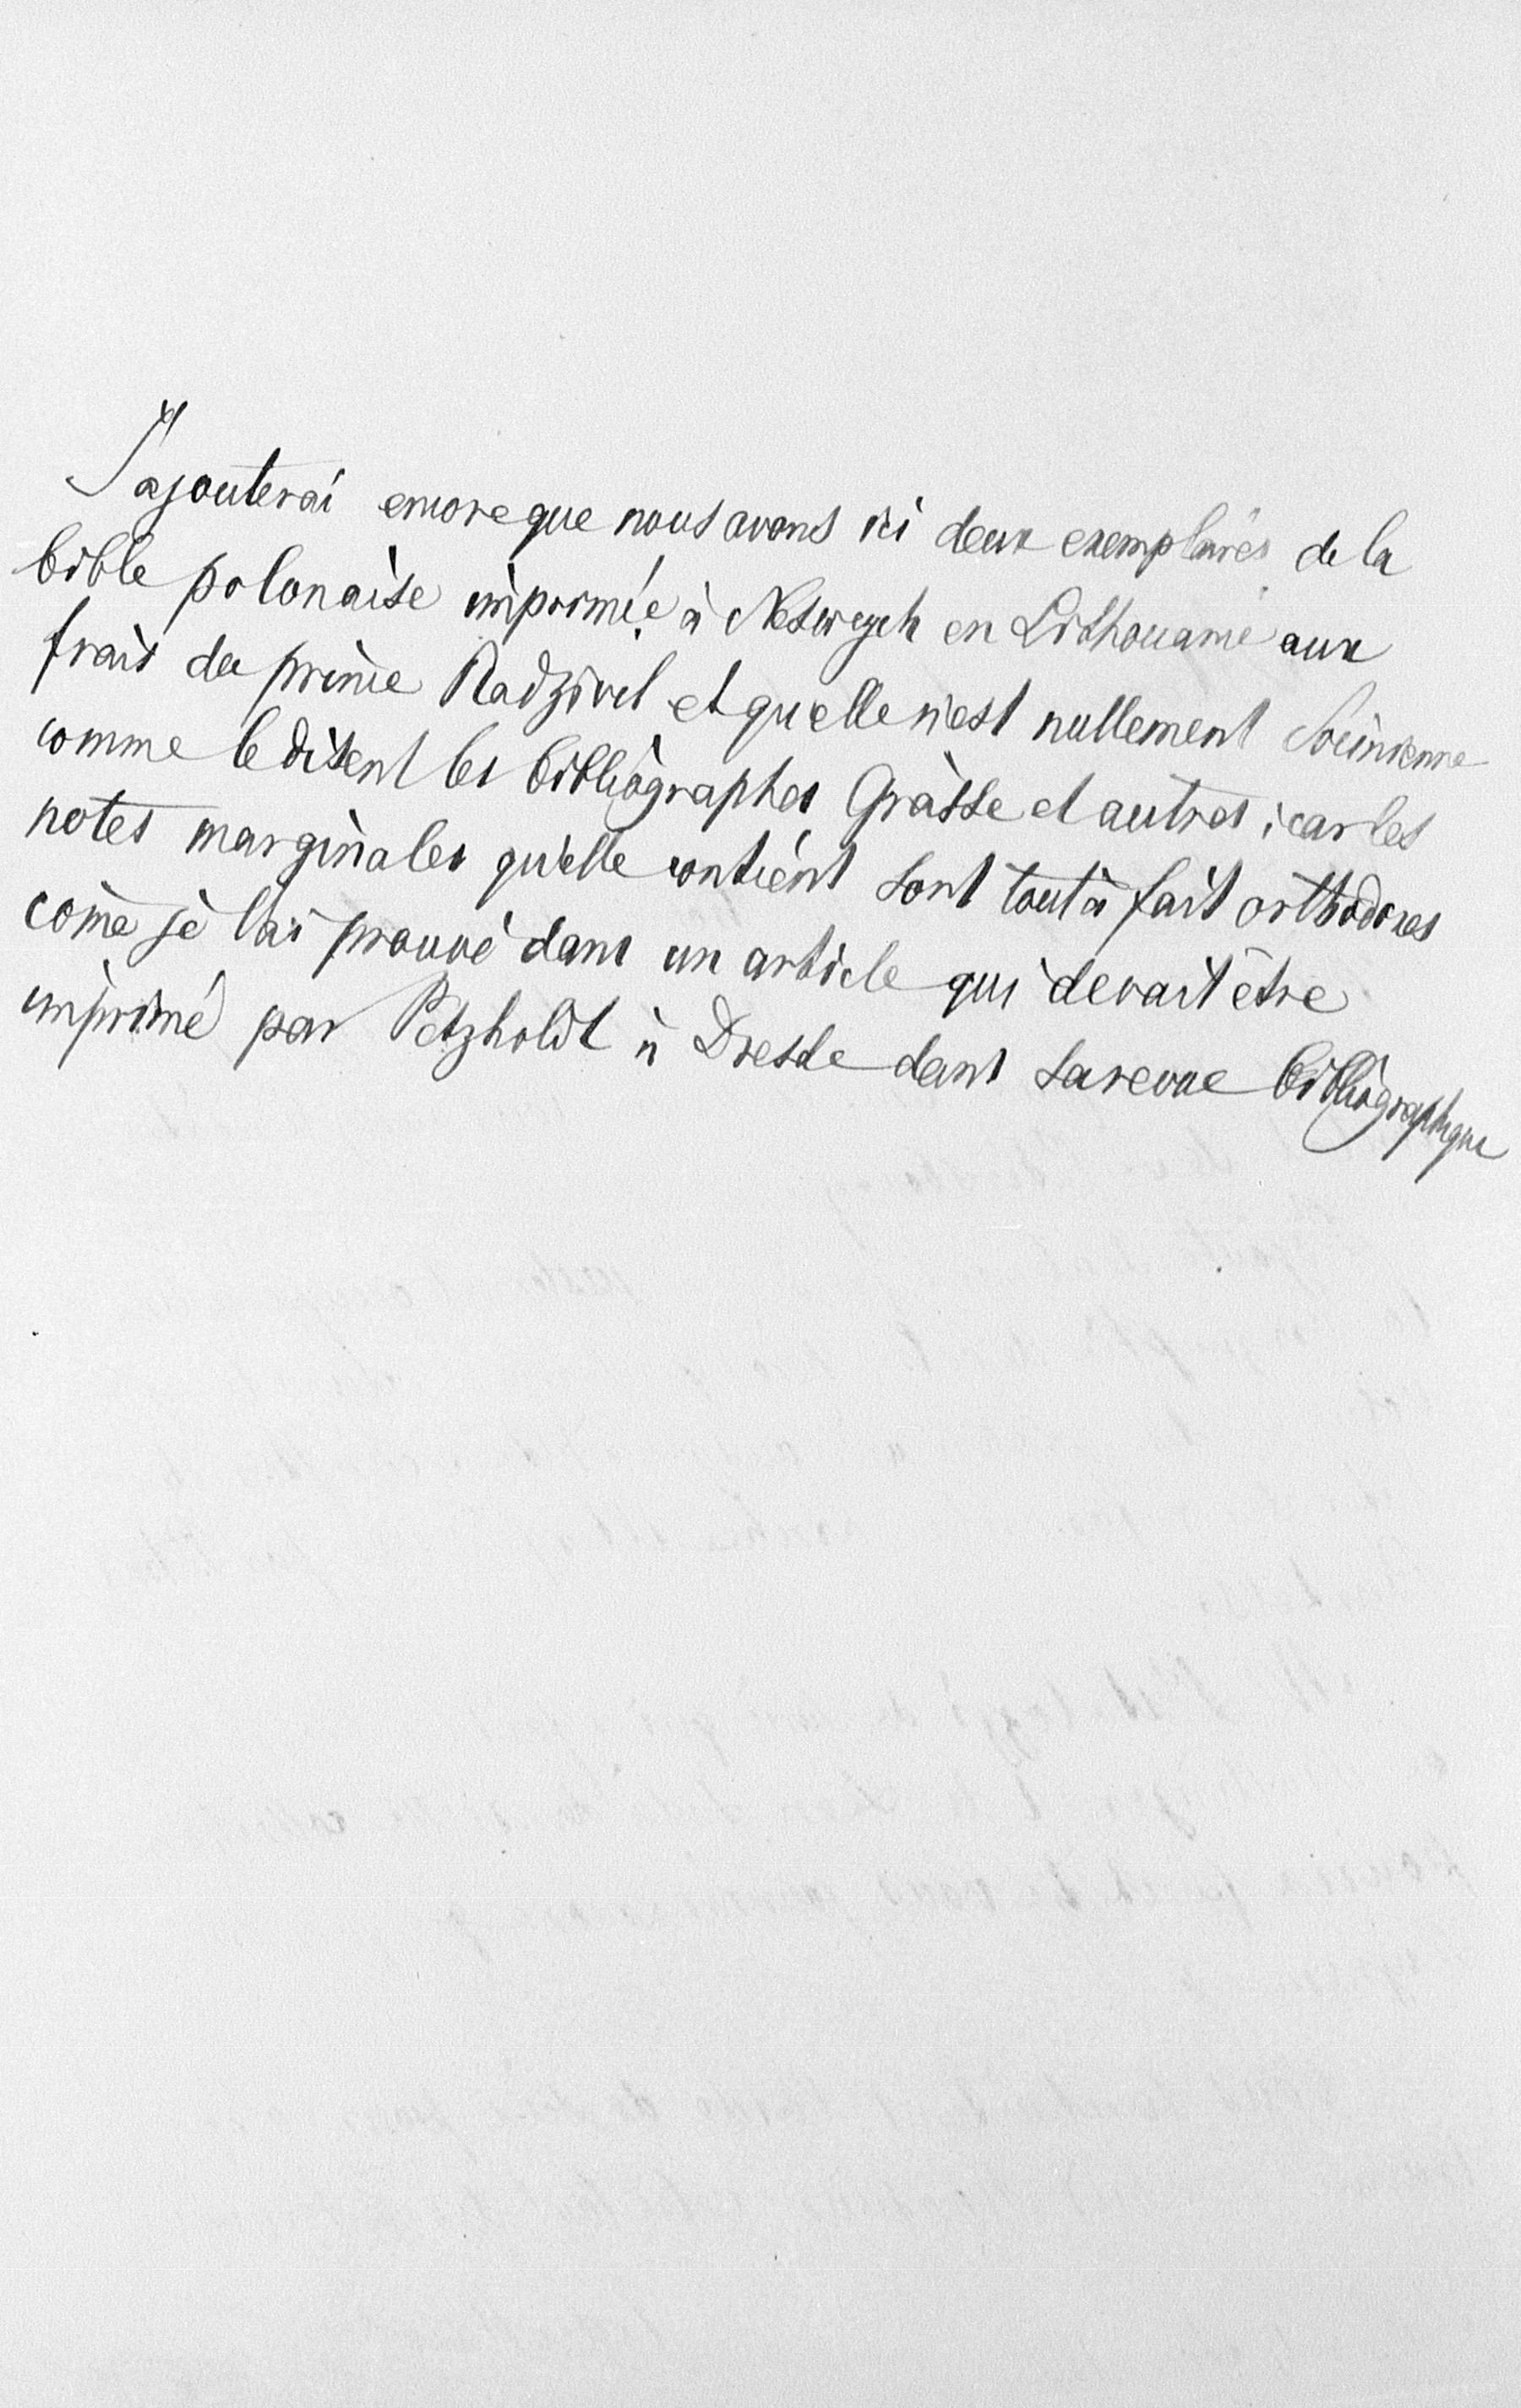 J'ajouterai encore que nous avons ici deux exemplaires de la
bible polonaise imprimée à Neswych en Lithouanie aux
frais du prince Radzivel et qu'elle n'est nullement Socinienne
comme le disent les bibliographes Grässe et autres, car les
notes marginales qu'elle contient sont tout à fait orthodoxes
come je l'ai prouvé dans un article qui devait être
imprimé par Petzholdt à Dresde dans sa revue bibliographique